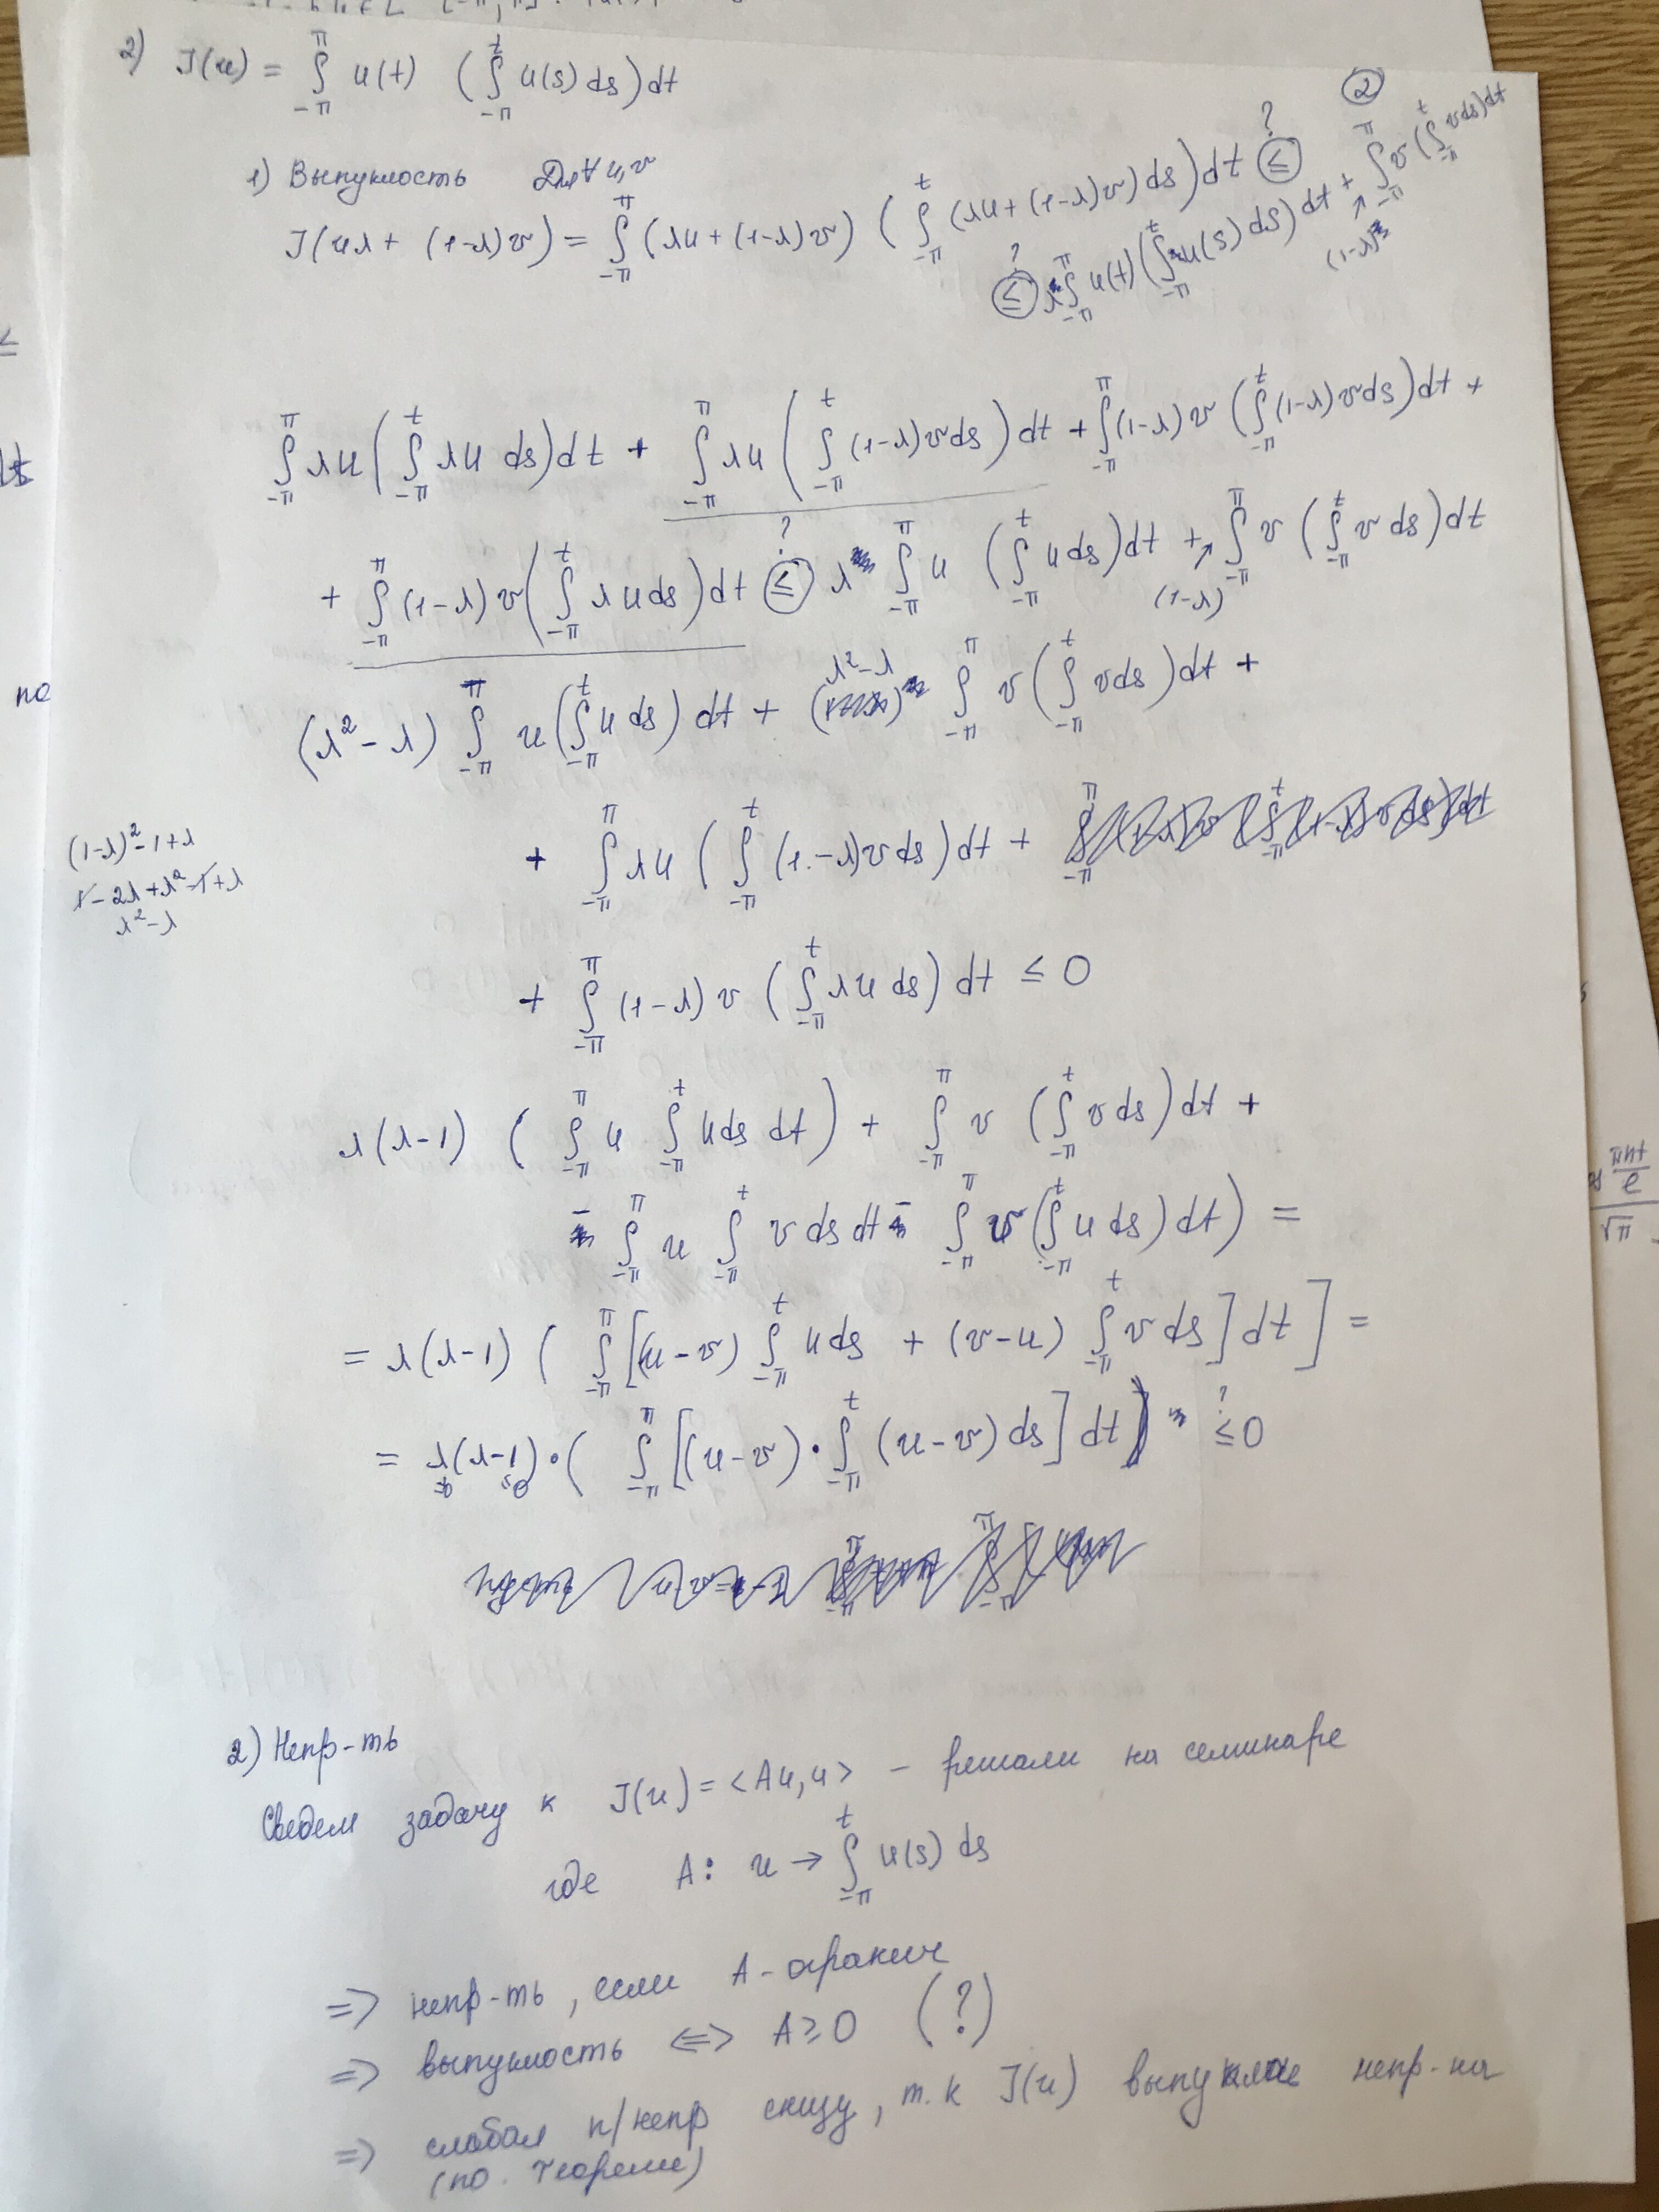 2) J(u) = ∫_{-π}^{π} u(t) (∫_{-π}^{t} u(s) ds) dt
1) Выпуклость Для ∀ u, v
②
J(uλ + (1-λ)v) = ∫_{-π}^{π} (λu + (1-λ)v) (∫_{-π}^{t} (λu + (1-λ)v) ds) dt ≤?
≤? λ ∫_{-π}^{π} u(t) (∫_{-π}^{t} u(s) ds) dt + (1-λ) ∫_{-π}^{π} v (∫_{-π}^{t} v ds) dt
∫_{-π}^{π} λu (∫_{-π}^{t} λu ds) dt + ∫_{-π}^{π} λu (∫_{-π}^{t} (1-λ)v ds) dt + ∫_{-π}^{π} (1-λ)v (∫_{-π}^{t} (1-λ)v ds) dt +
+ ∫_{-π}^{π} (1-λ)v (∫_{-π}^{t} λu ds) dt ≤? λ ∫_{-π}^{π} u (∫_{-π}^{t} u ds) dt + (1-λ) ∫_{-π}^{π} v (∫_{-π}^{t} v ds) dt
(λ² - λ) ∫_{-π}^{π} u (∫_{-π}^{t} u ds) dt + (λ² - λ) ∫_{-π}^{π} v (∫_{-π}^{t} v ds) dt +
(1-λ)² - 1 + λ
1 - 2λ + λ² - 1 + λ
λ² - λ
+ ∫_{-π}^{π} λu (∫_{-π}^{t} (1-λ)v ds) dt +
+ ∫_{-π}^{π} (1-λ)v (∫_{-π}^{t} λu ds) dt ≤ 0
λ(λ-1) (∫_{-π}^{π} u ∫_{-π}^{t} u ds dt) + ∫_{-π}^{π} v (∫_{-π}^{t} v ds) dt +
- ∫_{-π}^{π} u ∫_{-π}^{t} v ds dt - ∫_{-π}^{π} v (∫_{-π}^{t} u ds) dt) =
= λ(λ-1) (∫_{-π}^{π} [(u-v) ∫_{-π}^{t} u ds + (v-u) ∫_{-π}^{t} v ds] dt] =
= λ(λ-1) · (∫_{-π}^{π} [(u-v) · ∫_{-π}^{t} (u-v) ds] dt) ≤? 0
2) Непр-ть
Сведем задачу к J(u) = <Au, u> - решали на семинаре
где A: u → ∫_{-π}^{t} u(s) ds
⇒ непр-ть, если A - огранич
⇒ выпуклость ⇔ A ≥ 0 (?)
⇒ слабая п/непр снизу, т.к J(u) выпуклое непр-на
(по. теореме)
по
≤
πnt
e
√π